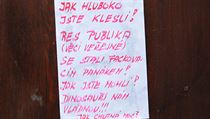 JAK HLUBOKO
JSTE KLESLI?
RES PUBLIKA
(VĚCI VEŘEJNÉ)
SE STALI PACKOVA-
CÍM PANÁKEM!
JAK JSTE MOHLI?
DINOSAUŘI NÁM
VLÁDNOU!!!
JAK CHUTNÁ MOC?